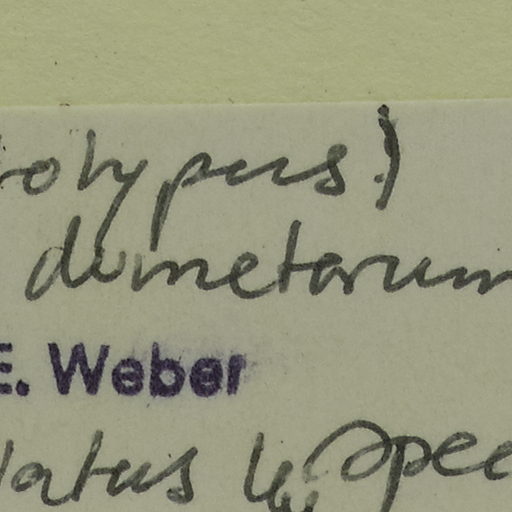 otypus!)
dumetorum
E. Weber
latus